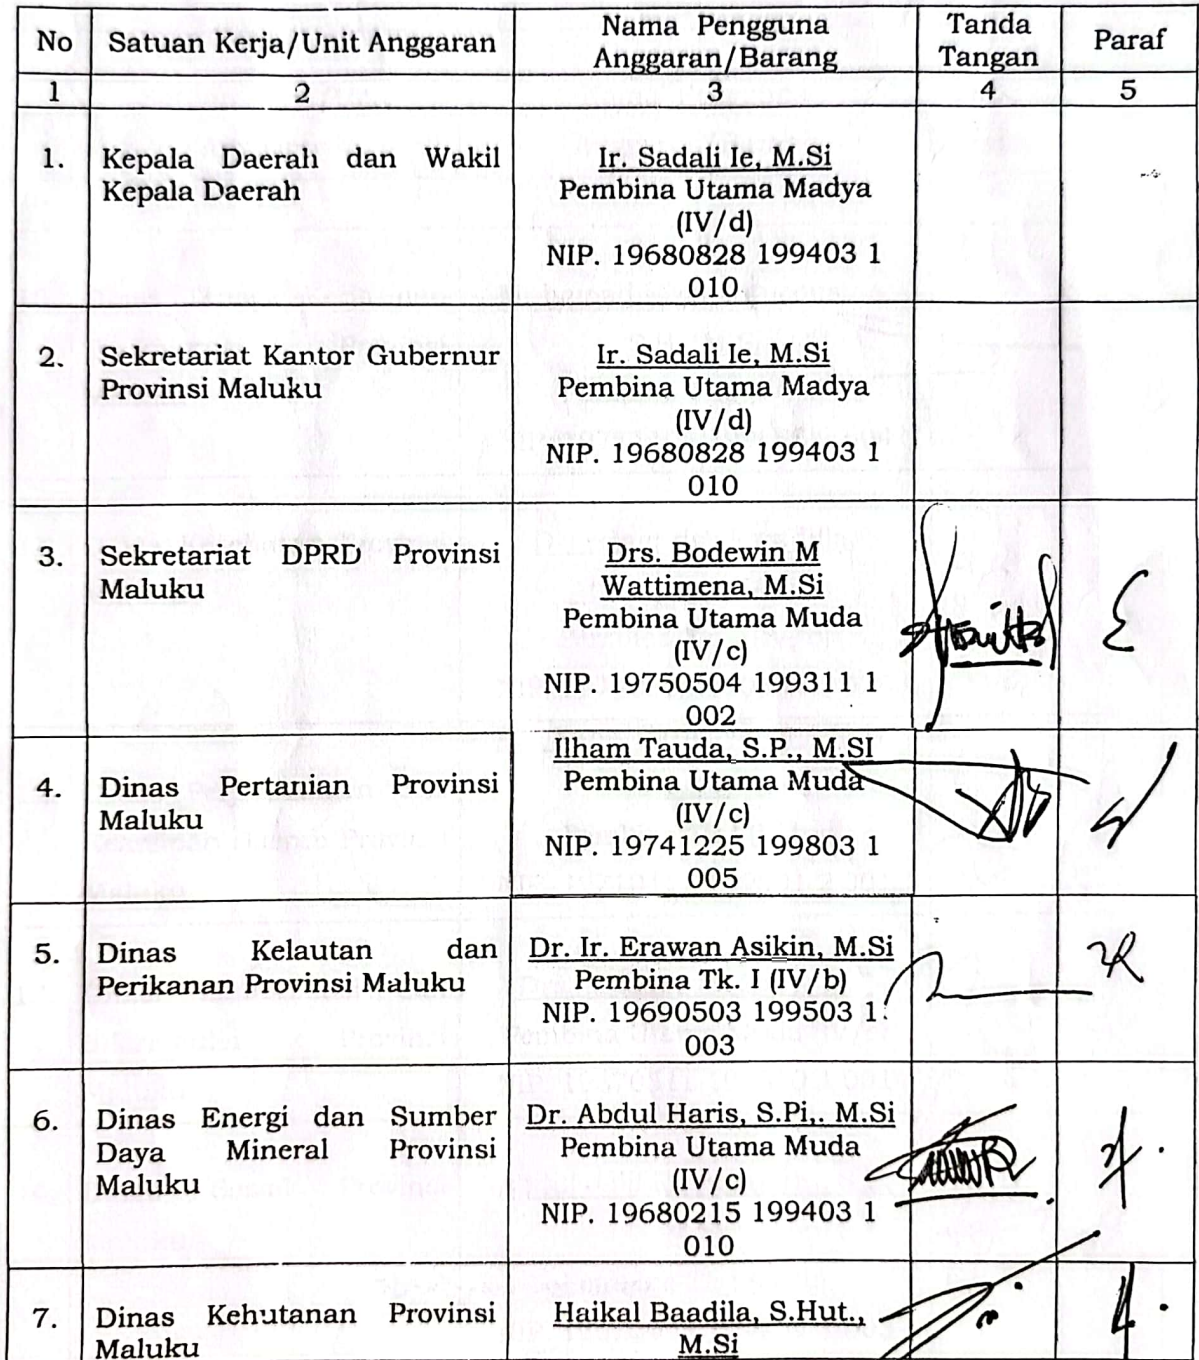 No Satuan Kerja/Unit Anggaran Nama Pengguna Anggaran/Barang Tanda Tangan Paraf
1 2 3 4 5
1. Kepala Daerah dan Wakil
Kepala Daerah
Ir. Sadali Ie, M.Si
Pembina Utama Madya
(IV/d)
NIP. 19680828 199403 1
010
2. Sekretariat Kantor Gubernur
Provinsi Maluku
Ir. Sadali Ie, M.Si
Pembina Utama Madya
(IV/d)
NIP. 19680828 199403 1
010
3. Sekretariat DPRD Provinsi
Maluku
Drs. Bodewin M
Wattimena, M.Si
Pembina Utama Muda
(IV/c)
NIP. 19750504 199311 1
002
4. Dinas Pertanian Provinsi
Maluku
Ilham Tauda, S.P., M.SI
Pembina Utama Muda
(IV/c)
NIP. 19741225 199803 1
005
5. Dinas Kelautan dan
Perikanan Provinsi Maluku
Dr. Ir. Erawan Asikin, M.Si
Pembina Tk. I (IV/b)
NIP. 19690503 199503 1
003
6. Dinas Energi dan Sumber
Daya Mineral Provinsi
Maluku
Dr. Abdul Haris, S.Pi,. M.Si
Pembina Utama Muda
(IV/c)
NIP. 19680215 199403 1
010
7. Dinas Kehutanan Provinsi
Maluku
Haikal Baadila, S.Hut.,
M.Si